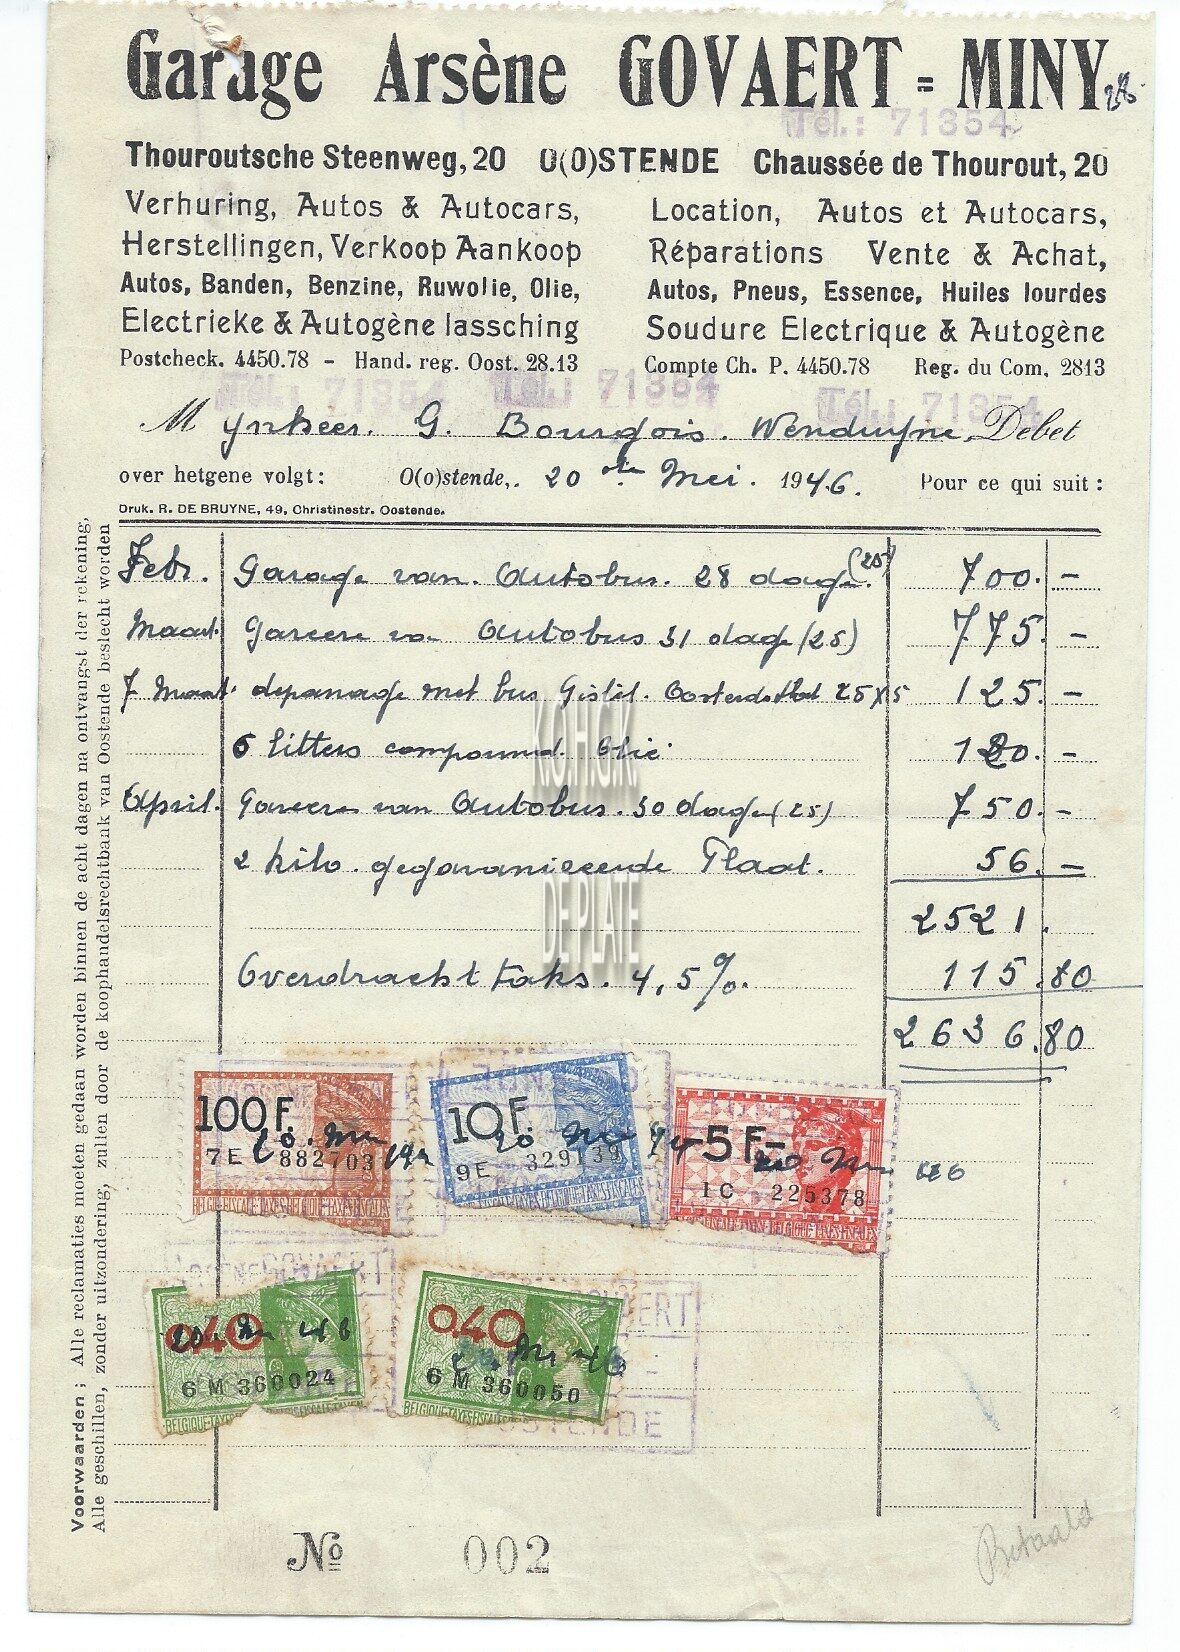 Garage Arsène GOVAERT = MINY
Tél.: 71354
Thouroutsche Steenweg, 20 O(O)STENDE Chaussée de Thourout, 20
Verhuring, Autos & Autocars,
Herstellingen, Verkoop Aankoop
Autos, Banden, Benzine, Ruwolie, Olie,
Electrieke & Autogène lassching
Postcheck. 4450.78 - Hand. reg. Oost. 28.13
Location, Autos et Autocars,
Réparations Vente & Achat,
Autos, Pneus, Essence, Huiles lourdes
Soudure Electrique & Autogène
Compte Ch. P. 4450.78 Reg. du Com. 2813
Tél.: 71354 Tél.: 71354 Tél.: 71354
Mynheer. G. Bourgois. Wenduyne. Debet
over hetgene volgt: O(o)stende,. 20 Mei. 1946. Pour ce qui suit:
Druk. R. DE BRUYNE, 49, Christinestr. Oostende.
Febr. Garage van. Autobus. 28 dage. (25) 700. -
Maart. Gareere van Autobus 31 dage (25) 775. -
7 Maart. depanage met bus Gistel. 25 x 5 125. -
6 litters compound. Olie. -
April. Gareere van Autobus. 30 dage (25) 750. -
2 kilo. Plaat. 56. -
2521.
Overdracht taks. 4,5%. 115.80
2636.80
K.O.H.G.K.
DE PLATE
100F.
7E 882703
10F.
9E 329139
5F-
1C 225378
0.40
6 M 360024
0.40
6 M 360050
BELGIQUE-TAXES FISCALES
GOVAERT
OSTENDE
Voorwaarden; Alle reclamaties moeten gedaan worden binnen de acht dagen na ontvangst der rekening,
Alle geschillen, zonder uitzondering, zullen door de koophandelsrechtbank van Oostende beslecht worden
No 002
Betaald